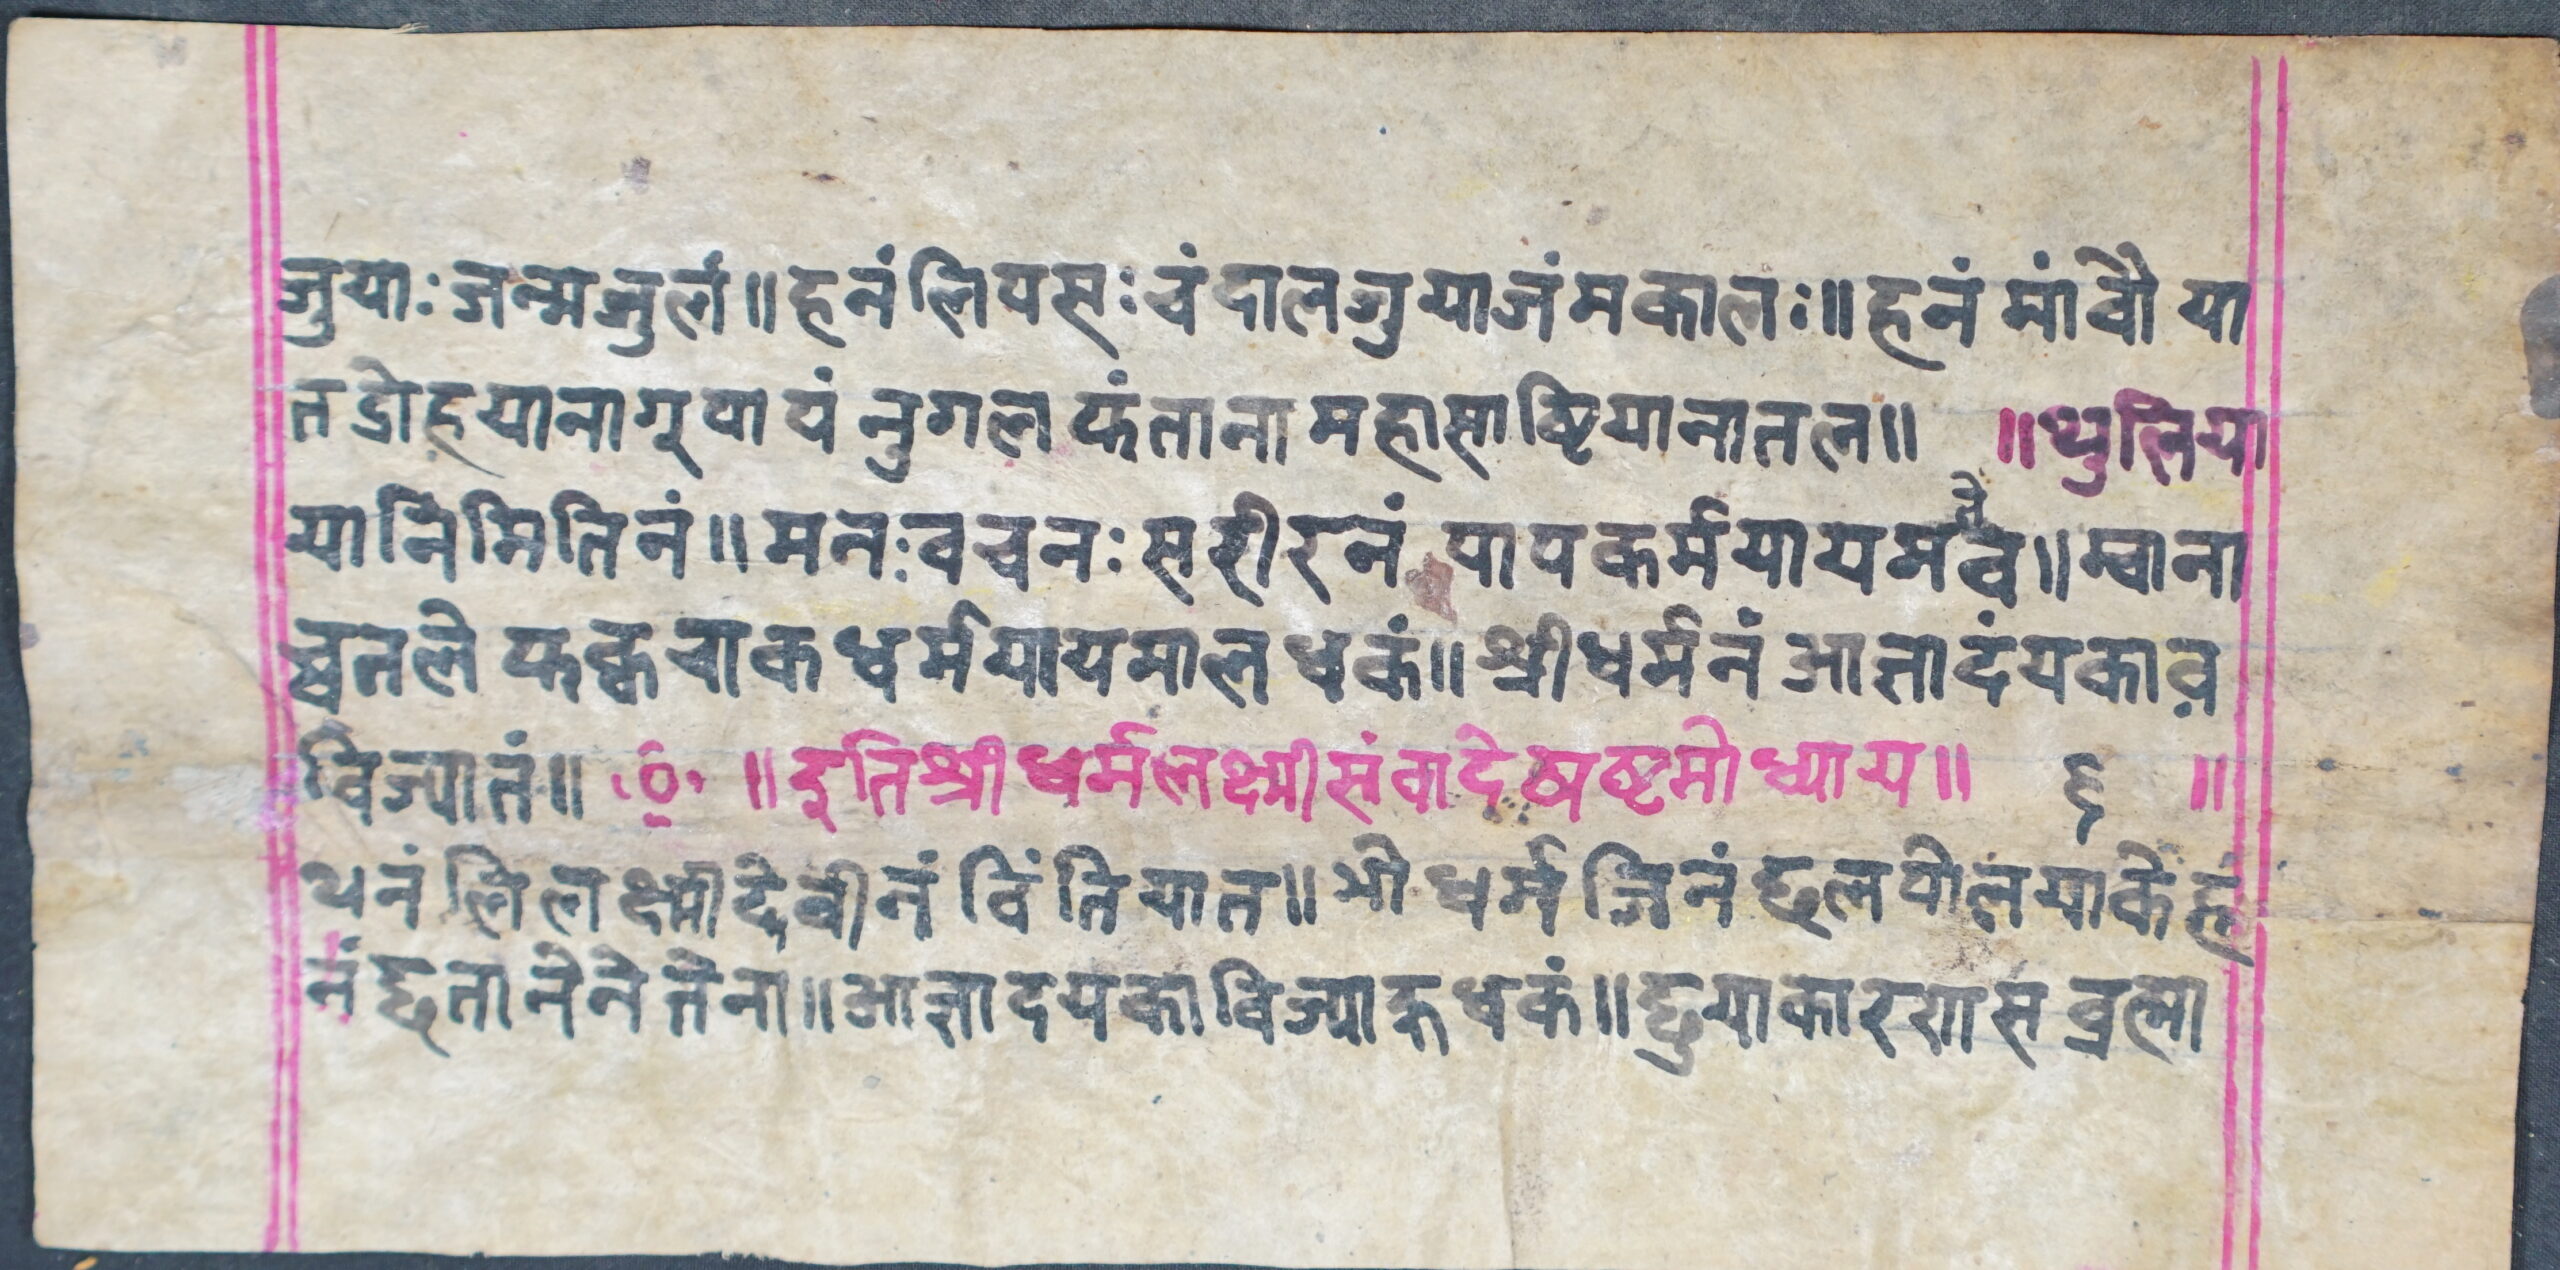 जुयाः जन्मजुलं॥ हनं लिपसः चंदालजुयाजंमकालः॥ हनं मांबौ या
त द्रोहयानागूपापं नुगल फंताना महासाष्टियानातल॥ ॥थुलिया
यानिमितिनं॥ मनःवचनः सरीरनं पापकर्मयायमतेव॥ म्वाना
च्वतले फक्वचाक धर्मयायमाल धकं॥ श्रीधर्मनं आज्ञादंयकाव
विज्यातं॥ ॥इतिश्रीधर्मलक्ष्मीसंवादेषष्टमोध्याय॥ ६ ॥
थनं लि लक्ष्मीदेवीनं विंतियात॥ भो धर्म जिनं छलपोलयाके हनं
नं छता नेने तेना॥ आज्ञादयकाविज्याहुधकं॥ छुयाकारणस ब्रह्मा